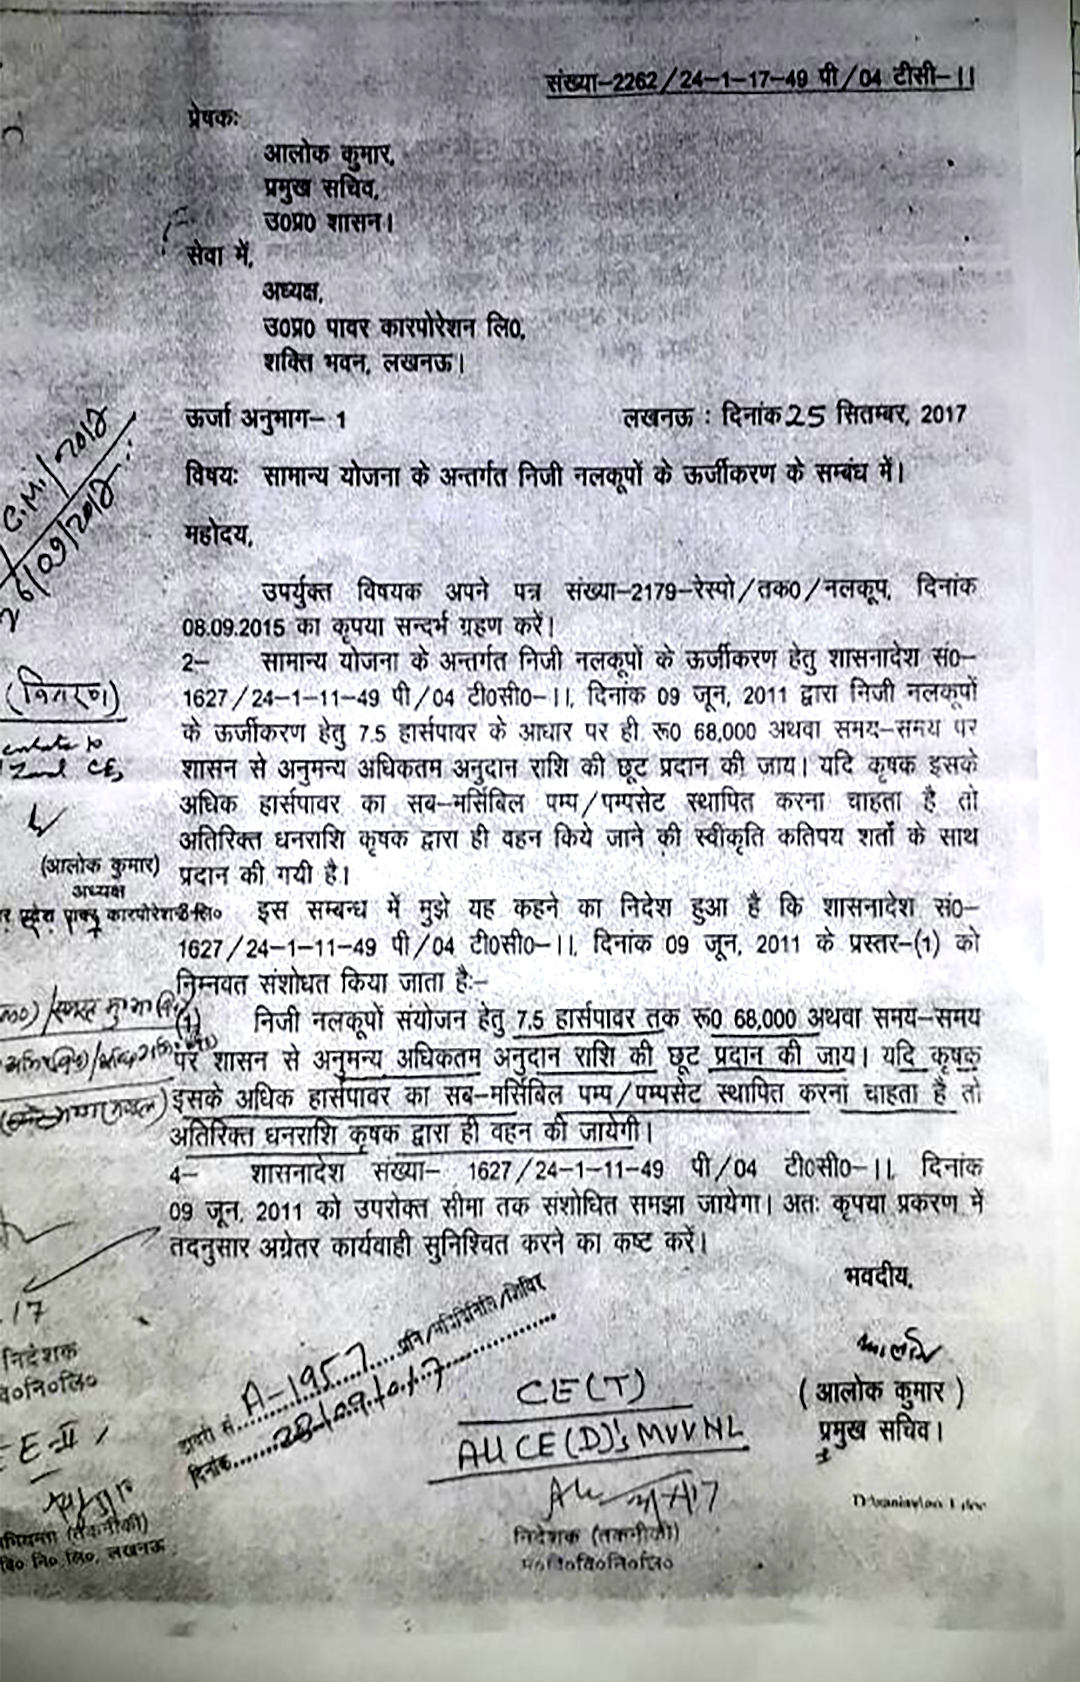 संख्या–2262/24–1–17–49 पी/04 टीसी–।।
प्रेषकः
आलोक कुमार,
प्रमुख सचिव,
उ0प्र0 शासन।
सेवा में,
अध्यक्ष,
उ0प्र0 पावर कारपोरेशन लि0,
शक्ति भवन, लखनऊ।
ऊर्जा अनुभाग– 1
लखनऊ : दिनांक 25 सितम्बर, 2017
विषयः सामान्य योजना के अन्तर्गत निजी नलकूपों के ऊर्जीकरण के सम्बंध में।
महोदय,
उपर्युक्त विषयक अपने पत्र संख्या–2179–रेस्पो/तक0/नलकूप, दिनांक
08.09.2015 का कृपया सन्दर्भ ग्रहण करें।
2– सामान्य योजना के अन्तर्गत निजी नलकूपों के ऊर्जीकरण हेतु शासनादेश सं0–
1627/24–1–11–49 पी/04 टी0सी0–।।, दिनांक 09 जून, 2011 द्वारा निजी नलकूपों
के ऊर्जीकरण हेतु 7.5 हार्सपावर के आधार पर ही रू0 68,000 अथवा समय–समय पर
शासन से अनुमन्य अधिकतम अनुदान राशि की छूट प्रदान की जाय। यदि कृषक इसके
अधिक हार्सपावर का सब–मर्सिबिल पम्प/पम्पसेट स्थापित करना चाहता है तो
अतिरिक्त धनराशि कृषक द्वारा ही वहन किये जाने की स्वीकृति कतिपय शर्तों के साथ
प्रदान की गयी है।
इस सम्बन्ध में मुझे यह कहने का निदेश हुआ है कि शासनादेश सं0–
1627/24–1–11–49 पी/04 टी0सी0–।।, दिनांक 09 जून, 2011 के प्रस्तर–(1) को
निम्नवत संशोधत किया जाता हैः–
(1) निजी नलकूपों संयोजन हेतु 7.5 हार्सपावर तक रू0 68,000 अथवा समय–समय
पर शासन से अनुमन्य अधिकतम अनुदान राशि की छूट प्रदान की जाय। यदि कृषक
इसके अधिक हार्सपावर का सब–मर्सिबिल पम्प/पम्पसेट स्थापित करना चाहता है तो
अतिरिक्त धनराशि कृषक द्वारा ही वहन की जायेगी।
4– शासनादेश संख्या– 1627/24–1–11–49 पी/04 टी0सी0–।। दिनांक
09 जून, 2011 को उपरोक्त सीमा तक संशोधित समझा जायेगा। अतः कृपया प्रकरण में
तदनुसार अग्रेतर कार्यवाही सुनिश्चित करने का कष्ट करें।
भवदीय,
( आलोक कुमार )
प्रमुख सचिव।
(वितरण)
(आलोक कुमार)
अध्यक्ष
कारपोरेशन लि०
17
निदेशक
वि०नि०लि०
E-II
(तकनीकी)
वि० नि० लि०, लखनऊ
A-1957
दिनांक 28/09/017
CE(T)
All CE(D)'s MVVNL
निदेशक (तकनीकी)
म०वि०वि०नि०लि०